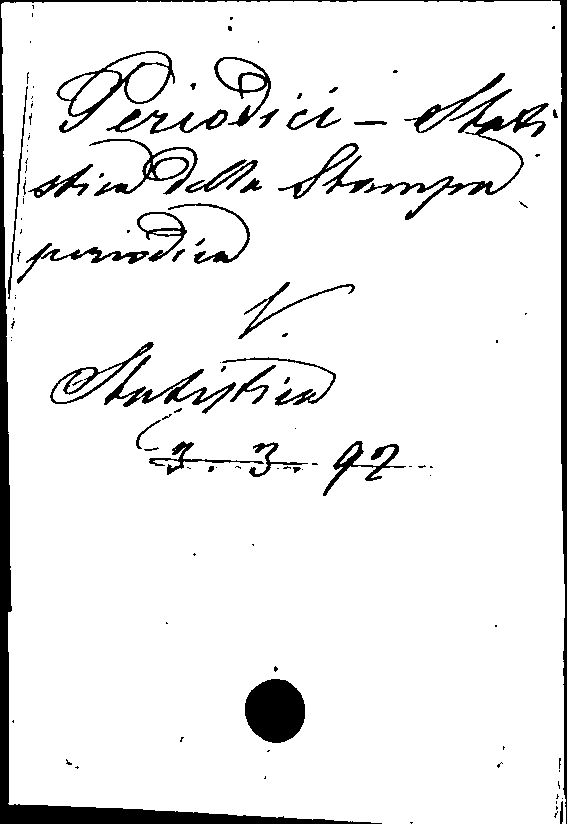 Periodici – Stati
stica della Stampa
periodica
V.
Statistica
3. 3. 92